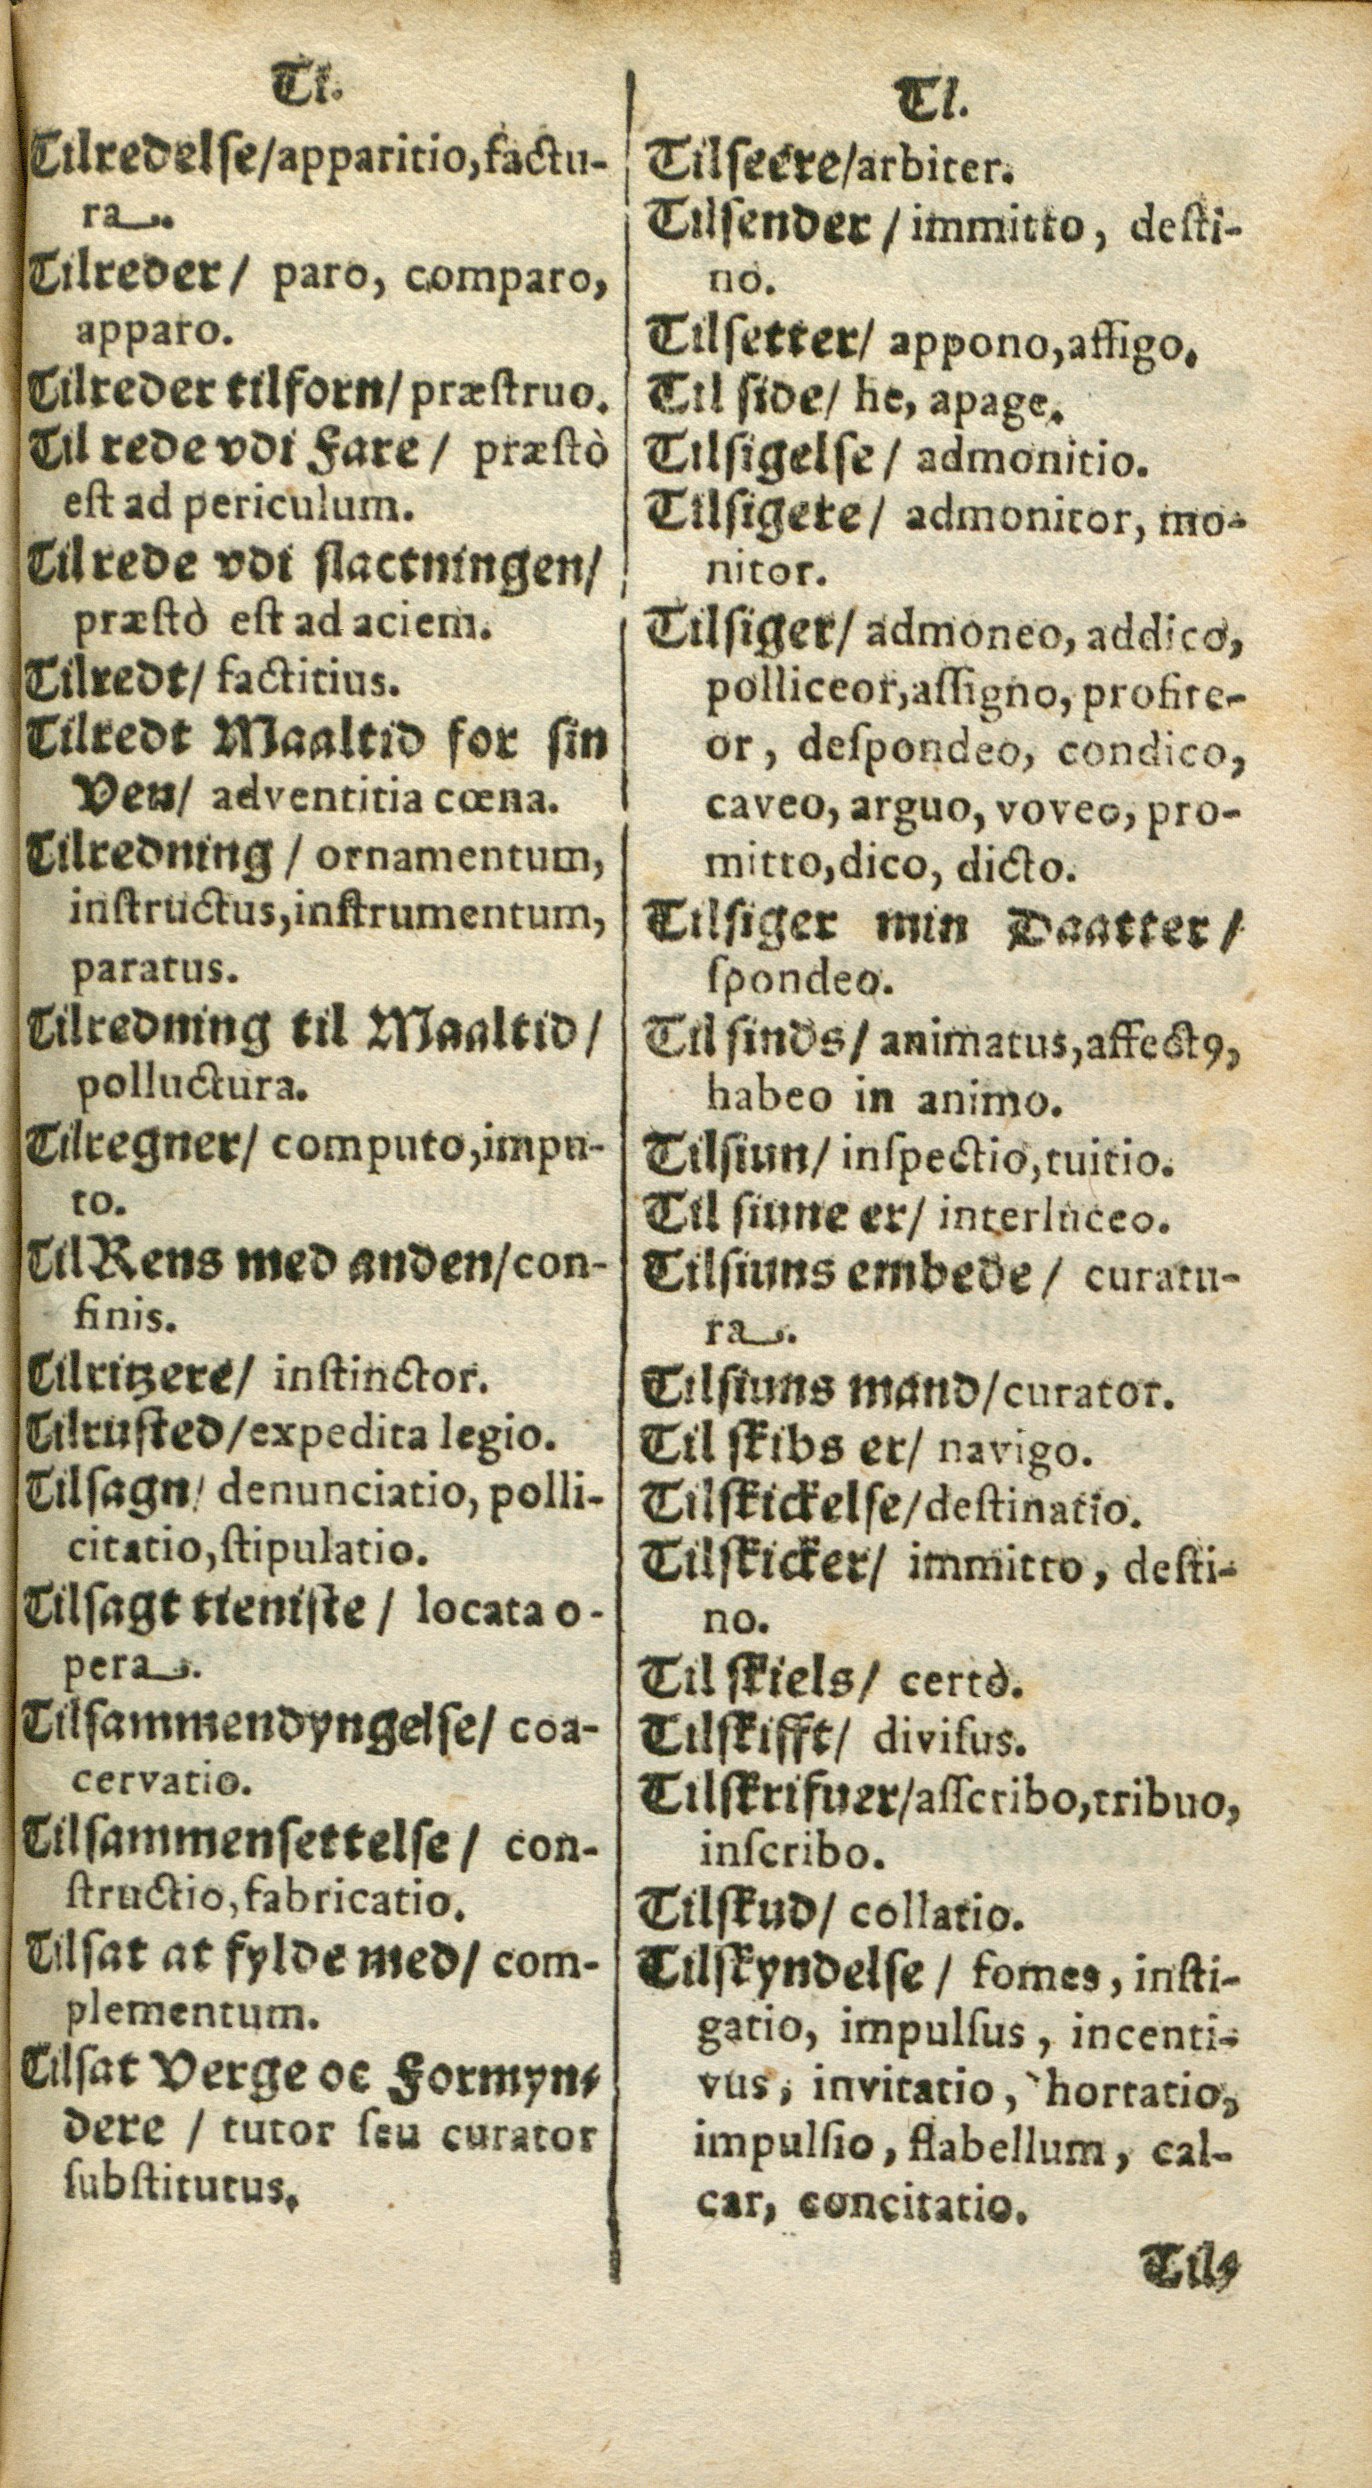 Tl.
Tilredelse/apparitio, factu-
ra.
Tilreder/ paro, comparo,
apparo.
Tilreder tilforn/ præstruo.
Til rede vdi Fare/ præstò
est ad periculum.
Til rede vdi slactningen/
præstò est ad aciem.
Tilredt/ factitius.
Tilredt Maaltid for sin
Ven/ adventitia cœna.
Tilredning/ ornamentum,
instructus, instrumentum,
paratus.
Tilredning til Maaltid/
polluctura.
Tilregner/ computo, impu-
to.
Til Rens med anden/con-
finis.
Tilritzere/ instinctor.
Tilrusted/expedita legio.
Tilsagn/ denunciatio, polli-
citatio, stipulatio.
Tilsagt tieniste/ locata o-
pera.
Tilsammendyngelse/ coa-
cervatio.
Tilsammensettelse/ con-
structio, fabricatio.
Tilsat at fylde med/ com-
plementum.
Tilsat Verge oc Formyn-
dere / tutor seu curator
substitutus.
Tl.
Tilseere/arbiter.
Tilsender/ immitto, desti-
no.
Tilsetter/ appono, affigo.
Til side/ he, apage.
Tilsigelse/ admonitio.
Tilsigere/ admonitor, mo-
nitor.
Tilsiger/ admoneo, addico,
polliceor, assigno, profite-
or, despondeo, condico,
caveo, arguo, voveo, pro-
mitto, dico, dicto.
Tilsiger min Daatter/
spondeo.
Til sinds/ animatus, affectꝰ,
habeo in animo.
Tilsiun/ inspectio, tuitio.
Til siune er/ interluceo.
Tilsiuns embede/ curatu-
ra.
Tilsiuns mand/curator.
Til skibs er/ navigo.
Tilskickelse/destinatio.
Tilskicker/ immitto, desti-
no.
Til skiels/ certò.
Tilskifft/ divisus.
Tilskrifuer/asscribo, tribuo,
inscribo.
Tilskud/ collatio.
Tilskyndelse/ fomes, insti-
gatio, impulsus, incenti-
vus, invitatio, hortatio,
impulsio, flabellum, cal-
car, concitatio.
Til-